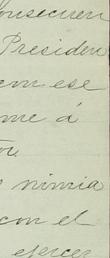 onsecuen
Presiden
con ese
me á
ou.
nimia
con el
ejercer